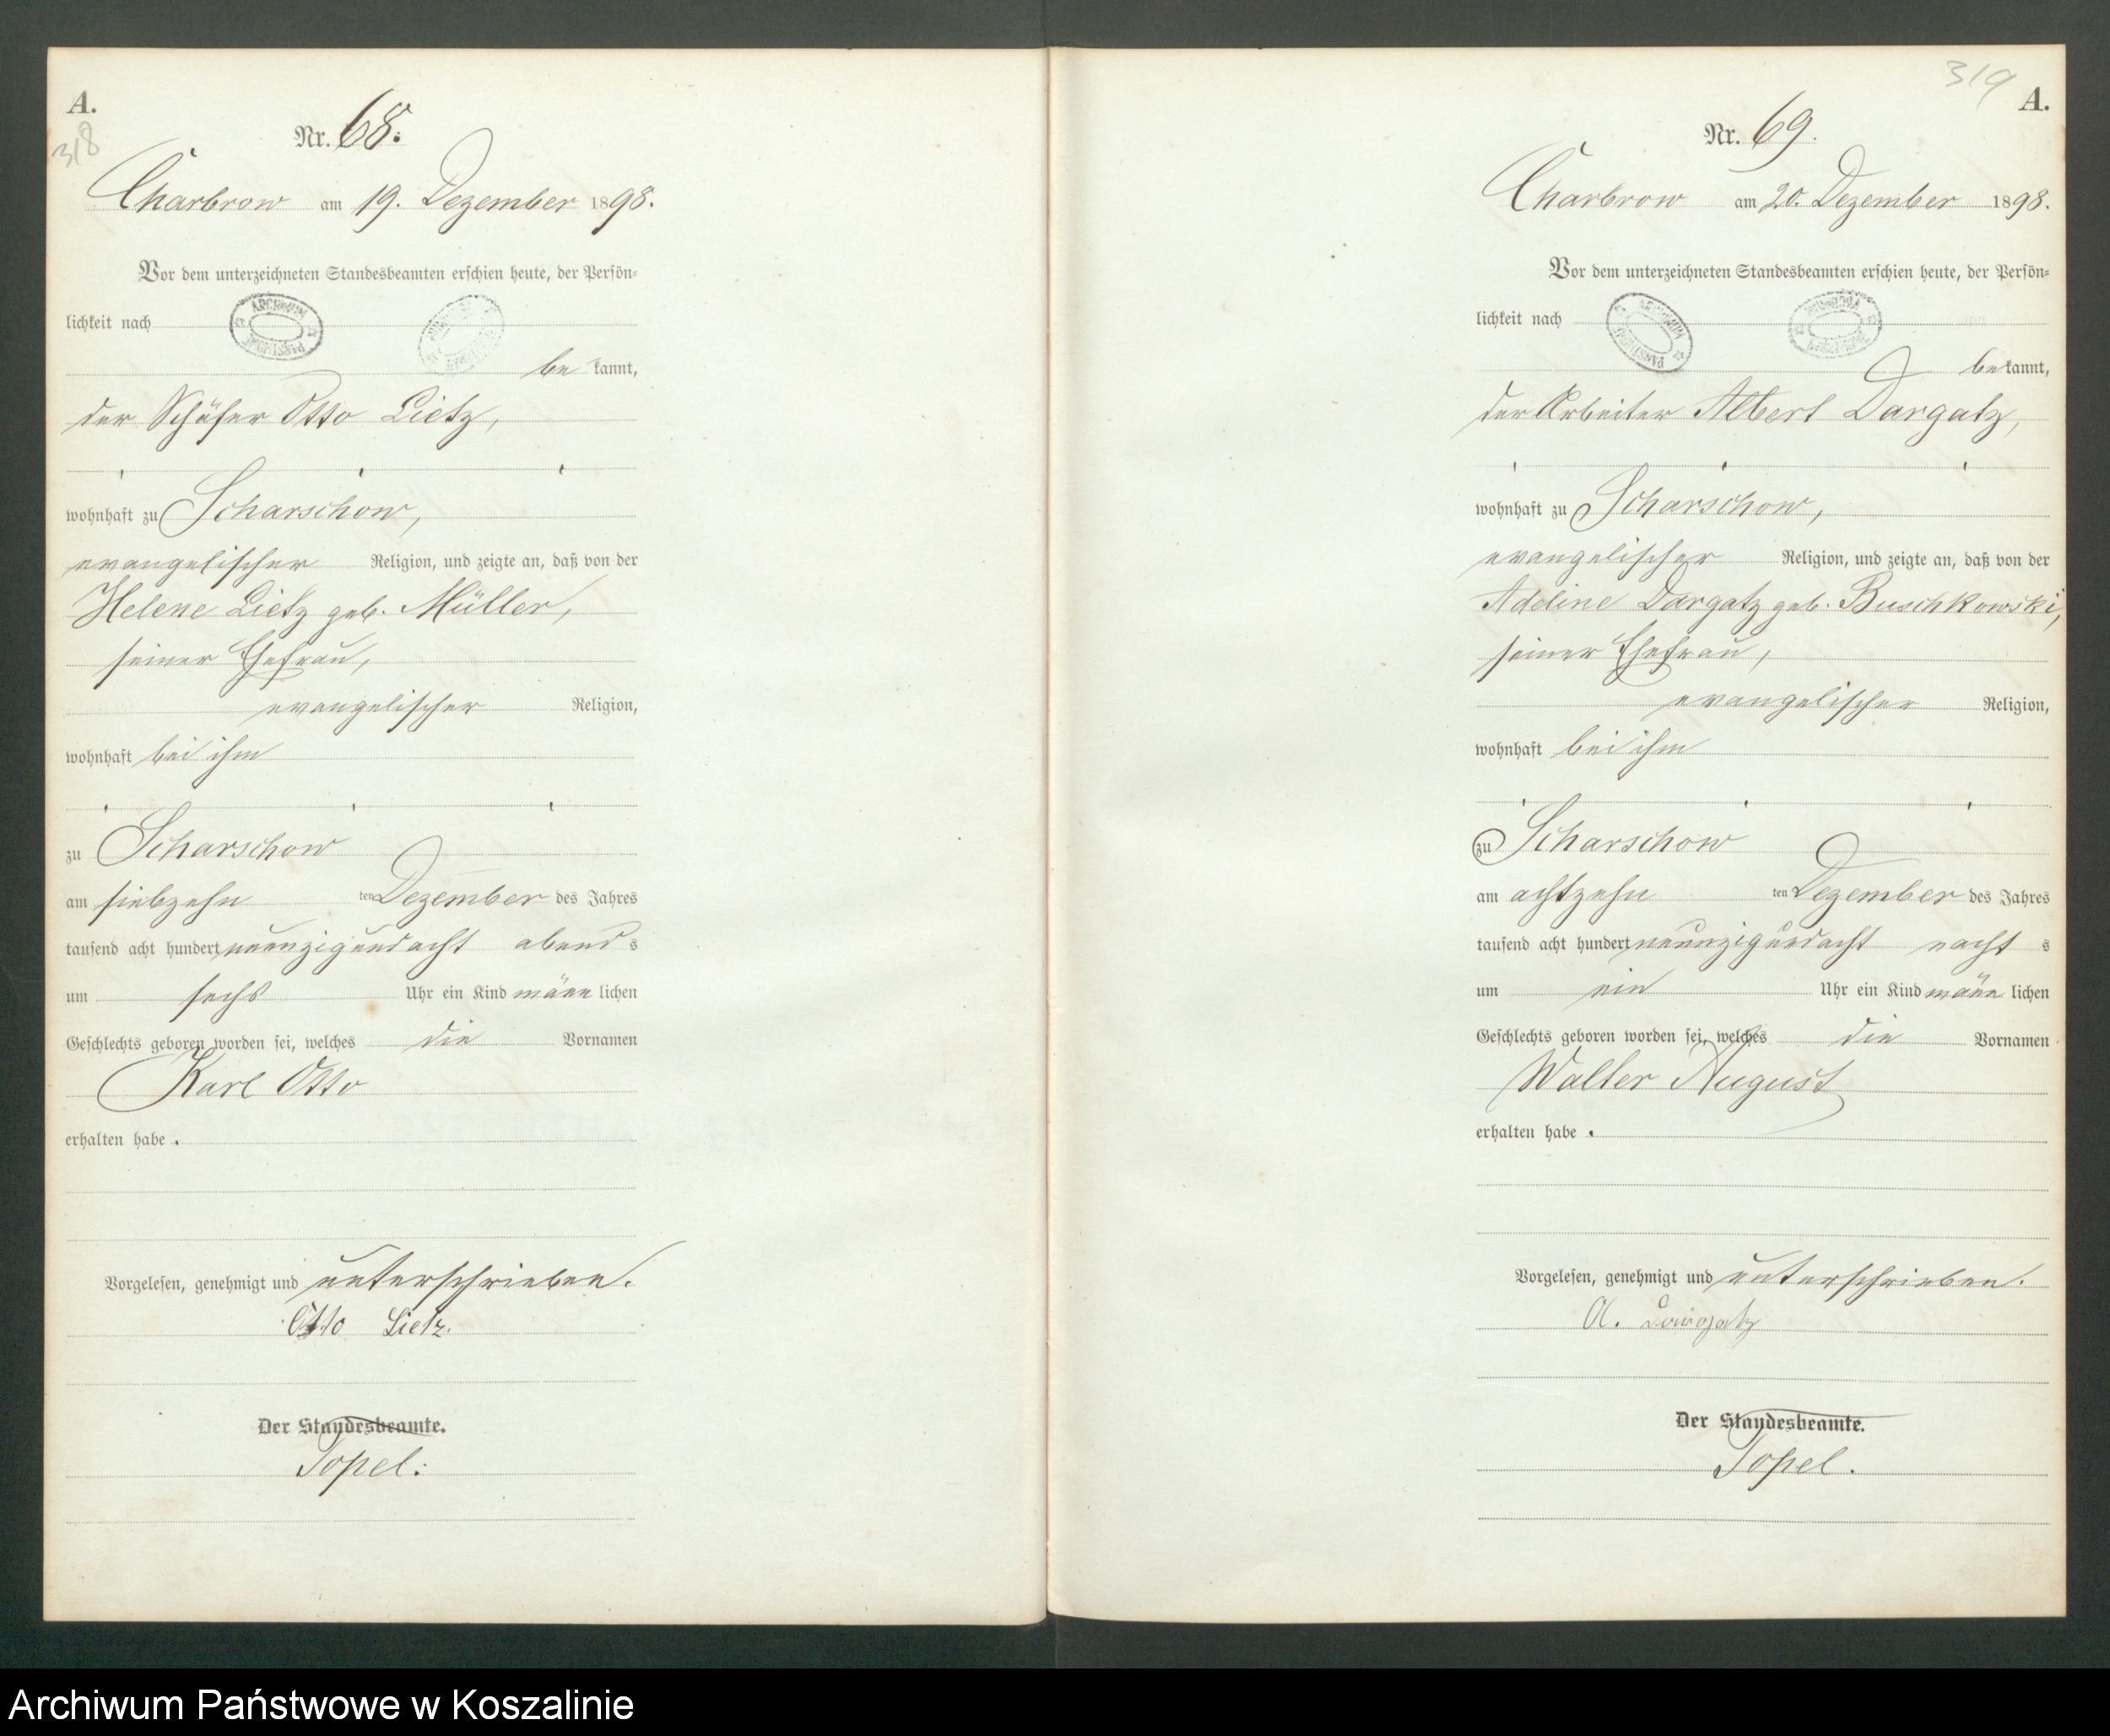 A.
318
Nr. 68.
Charbrow am 19. Dezember 1898.
Vor dem unterzeichneten Standesbeamten erschien heute, der Persön-
lichkeit nach
ARCHIWUM PAŃSTWOWE
be kannt,
der Schäfer Otto Lietz,
wohnhaft zu Scharschow,
evangelischer Religion, und zeigte an, daß von der
Helene Lietz geb. Müller,
seiner Ehefrau,
evangelischer Religion,
wohnhaft bei ihm
zu Scharschow
am siebzehn ten Dezember des Jahres
tausend acht hundert neunzigundacht abend s
um sechs Uhr ein Kind männ lichen
Geschlechts geboren worden sei, welches die Vornamen
Karl Otto
erhalten habe.
Vorgelesen, genehmigt und unterschrieben.
Otto Lietz.
Der Standesbeamte.
Topel.
319
A.
Nr. 69.
Charbrow am 20. Dezember 1898.
Vor dem unterzeichneten Standesbeamten erschien heute, der Persön-
lichkeit nach
ARCHIWUM PAŃSTWOWE
be kannt,
der Arbeiter Albert Dargatz,
wohnhaft zu Scharschow,
evangelischer Religion, und zeigte an, daß von der
Adeline Dargatz geb. Buschkowski,
seiner Ehefrau,
evangelischer Religion,
wohnhaft bei ihm
zu Scharschow
am achtzehn ten Dezember des Jahres
tausend acht hundert neunzigundacht nacht s
um ein Uhr ein Kind männ lichen
Geschlechts geboren worden sei, welches die Vornamen
Walter August
erhalten habe.
Vorgelesen, genehmigt und unterschrieben.
A. Dargatz
Der Standesbeamte.
Topel.
Archiwum Państwowe w Koszalinie